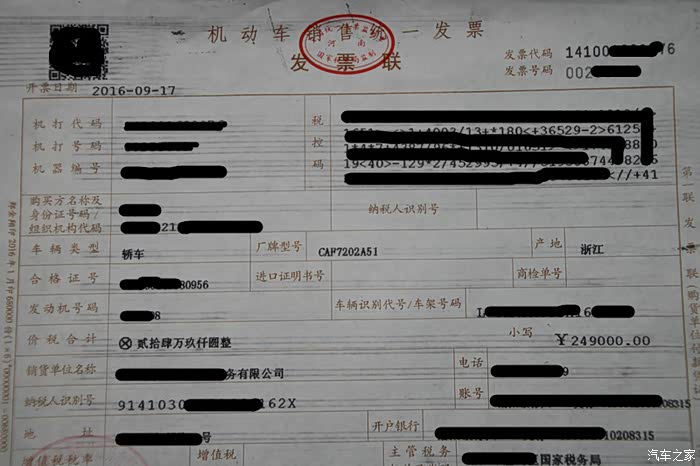 机动车销售统一发票
发票联
河南
国家税务局监制
发票代码 14100 6
发票号码 002
开票日期 2016-09-17
机打代码
机打号码
机器编号
税控码
+4003/13+*180<+36529-2>6125
19<40>-129*2/452993/
<//+41
购买方名称及
身份证号码/
组织机构代码 21
纳税人识别号
车辆类型 轿车 厂牌型号 CAF7202A51 产地 浙江
合格证号 80956 进口证明书号 商检单号
发动机号码 8 车辆识别代号/车架号码 6
价税合计 ⊗贰拾肆万玖仟圆整 小写 ¥249000.00
销货单位名称 务有限公司 电话 9
纳税人识别号 9141030 162X 账号 10208315
地址 号 开户银行 10208315
增值税税率 增值税 主管税务 国家税务局
第一联 发票联 (购货单位付款凭
汽车之家